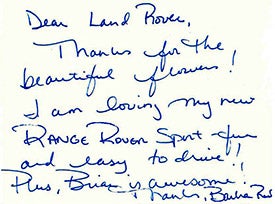 Dear Land Rover,
Thanks for the
beautiful flowers!
I am loving my new
RANGE ROVER Sport - fun
and easy to drive!!
Plus, Brian is awesome.
Thanks,